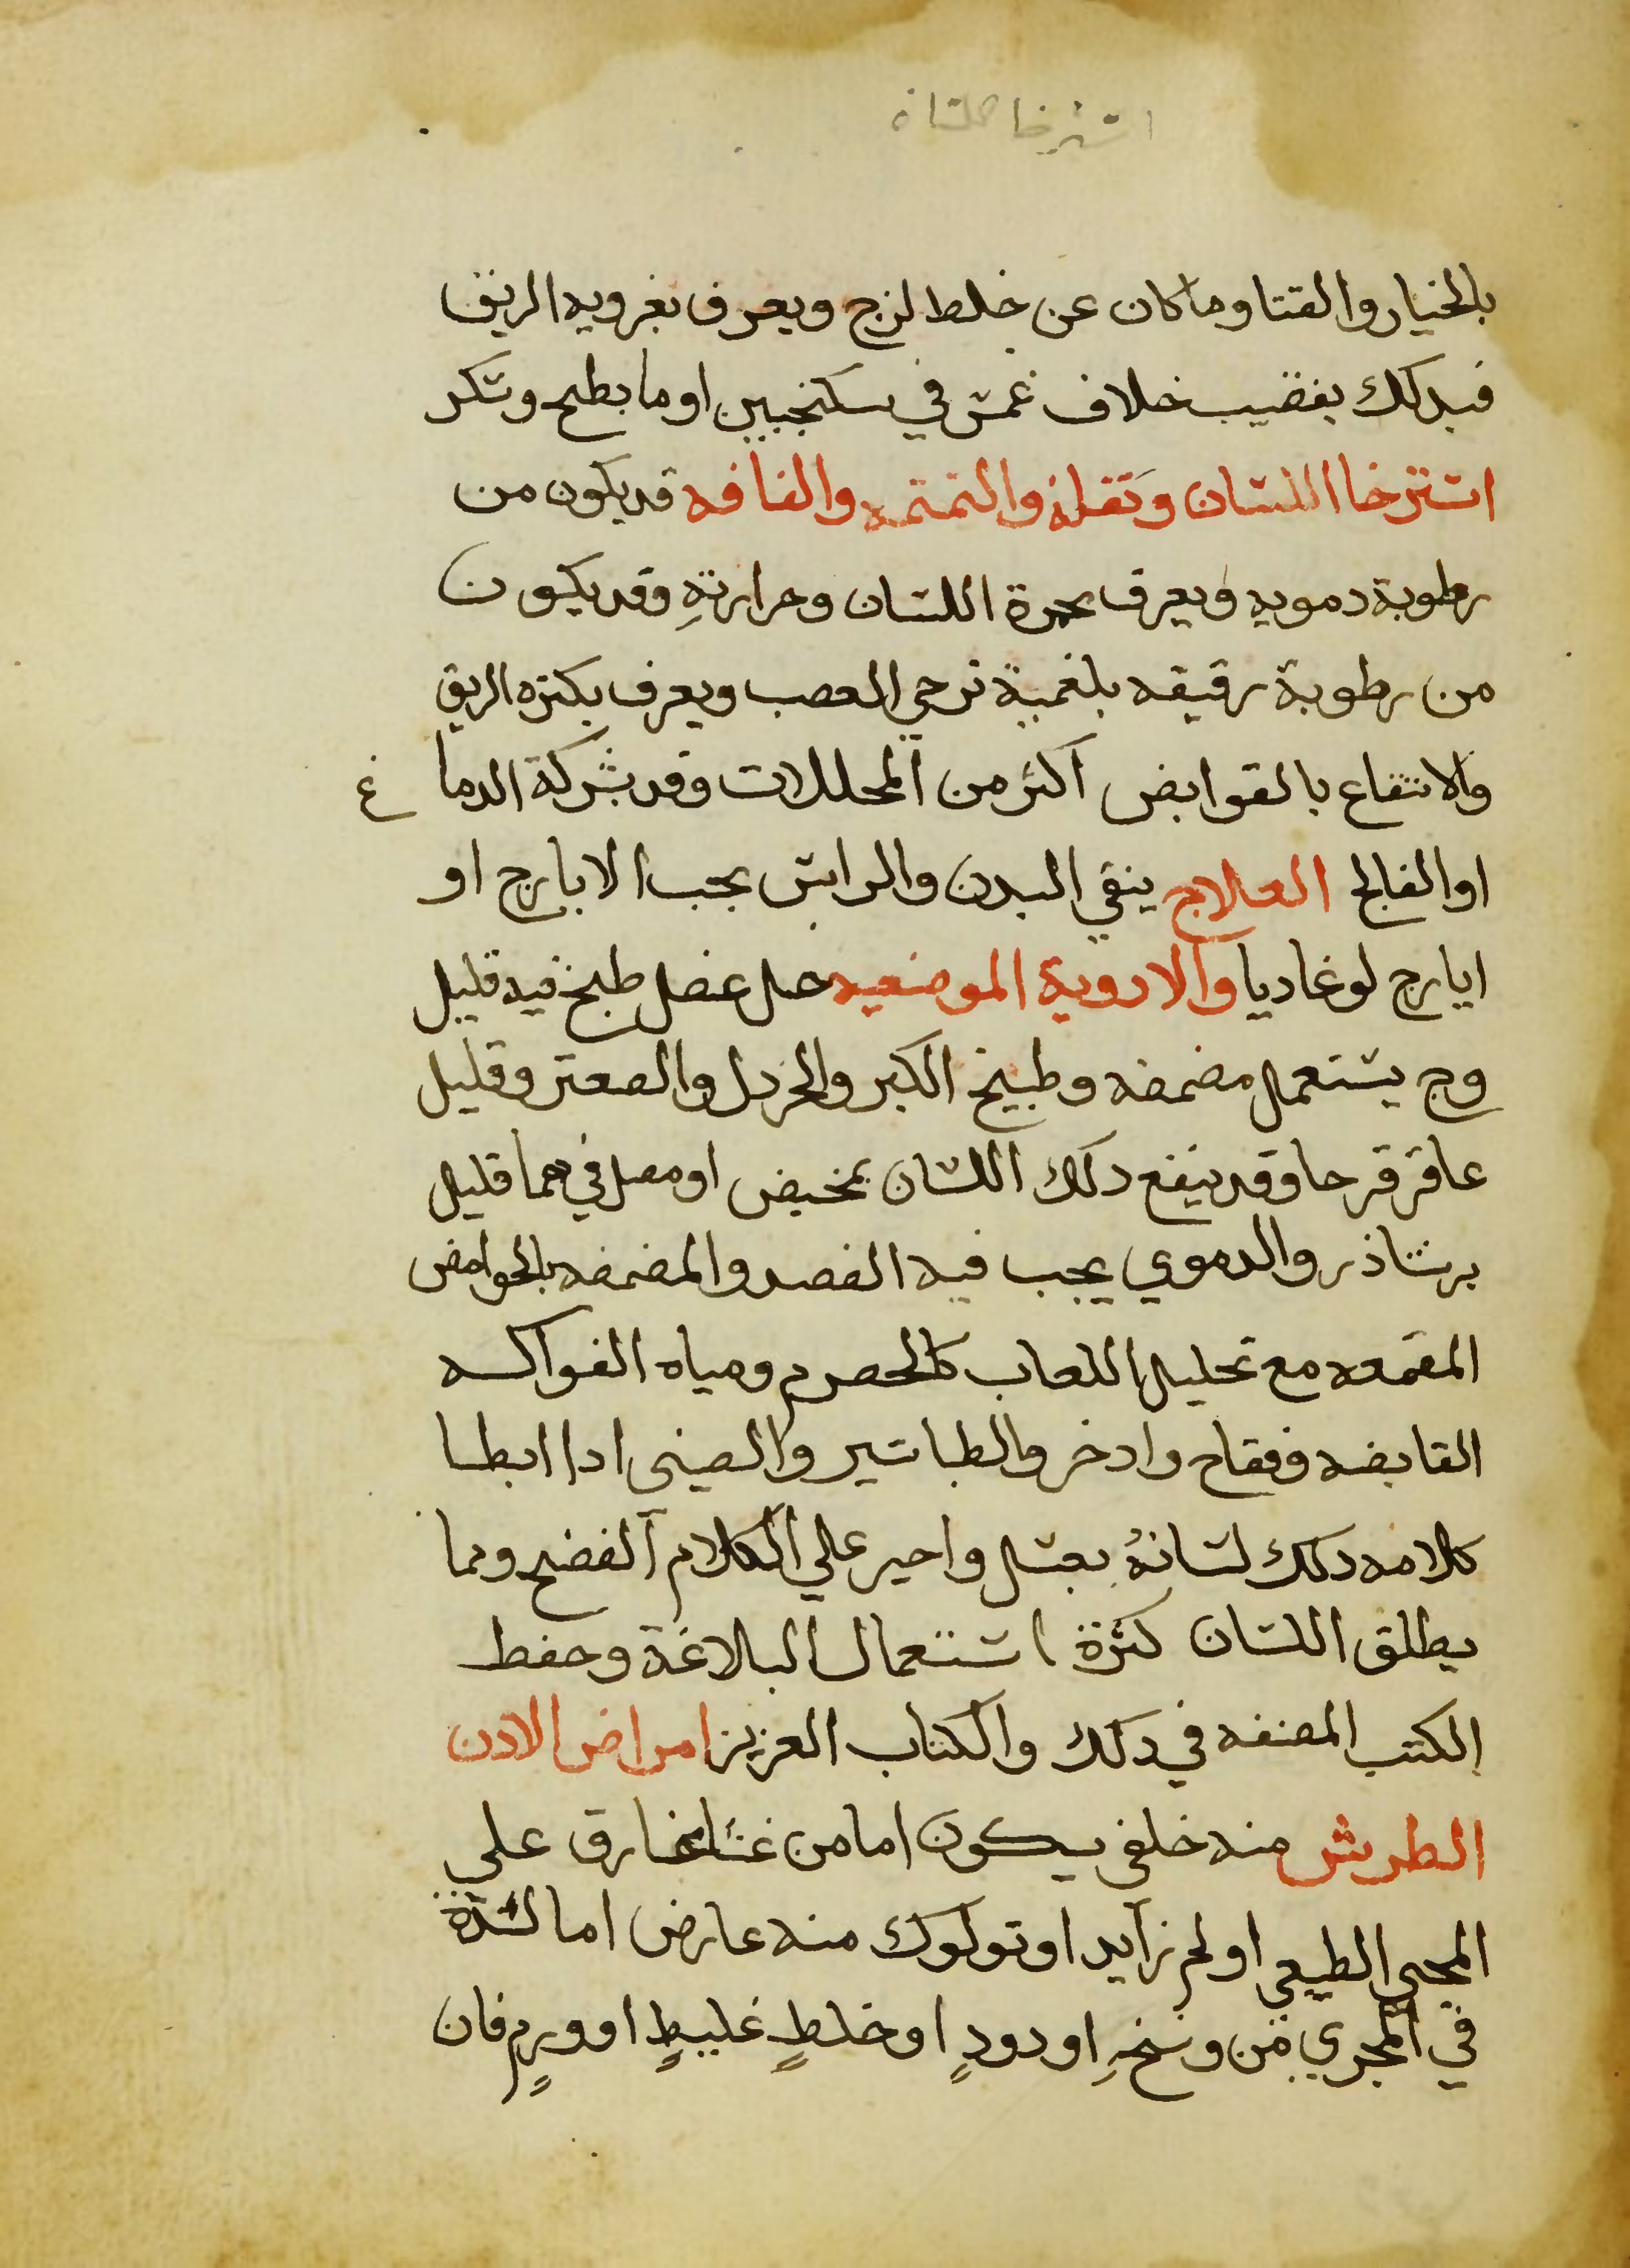 استرخا اللسان
بالخيار والقتا وما كان عن خلط لزج ويعرف بغرويه الريق
فبدلك بقضيب خلاف غمس في سكنجبين او ما بطيح وسكر
استرخا اللسان وثقله والتمتمه والفافه قد يكون من
رطوبة دمويه ويعرف بحمرة اللسان وحرارتهِ وقد يكون
من رطوبة رقيقه بلغمية ترخي العصب ويعرف بكثره الريق
والانتفاع بالقوابض أكثر من المحللات وقد بشركة الدماغ
او الفالج العلاج ينقي البدن والراس بحب الايارج او
ايارج لوغاديا والادوية الموضعيه خل عنصل طبخ فيه قليل
وج يستعمل مضمضه وطبيخ الكبر والخردل والصعتر وقليل
عاقرقرحا وقد ينفع دلك اللسان بمخيض او مصل فيهما قليل
نشاذر والدموي يجب فيه الفصد والمضمضه بالحوامض
المقمعه مع تحليل اللعاب كالحصرم ومياه الفواكه
القابضه وفقاح وادخر والطباشير والصبي ادا ابطا
كلامه دلك لسانهُ بعسل واجبر علي الكلام الفصيح ومما
يطلق اللسان كثرة استعمال البلاغة وحفظ
الكتب المصنفه في دلك والكتاب العزيز امراض الادن
الطرش منه خلقي يكون اما من غشا خارق علي
المجري الطبيعي او لحم زايد او تولول منه عارض اما لسدة
في المجري من وسخٍ او دودٍ او خلطٍ غليظٍ او ورمٍ فان